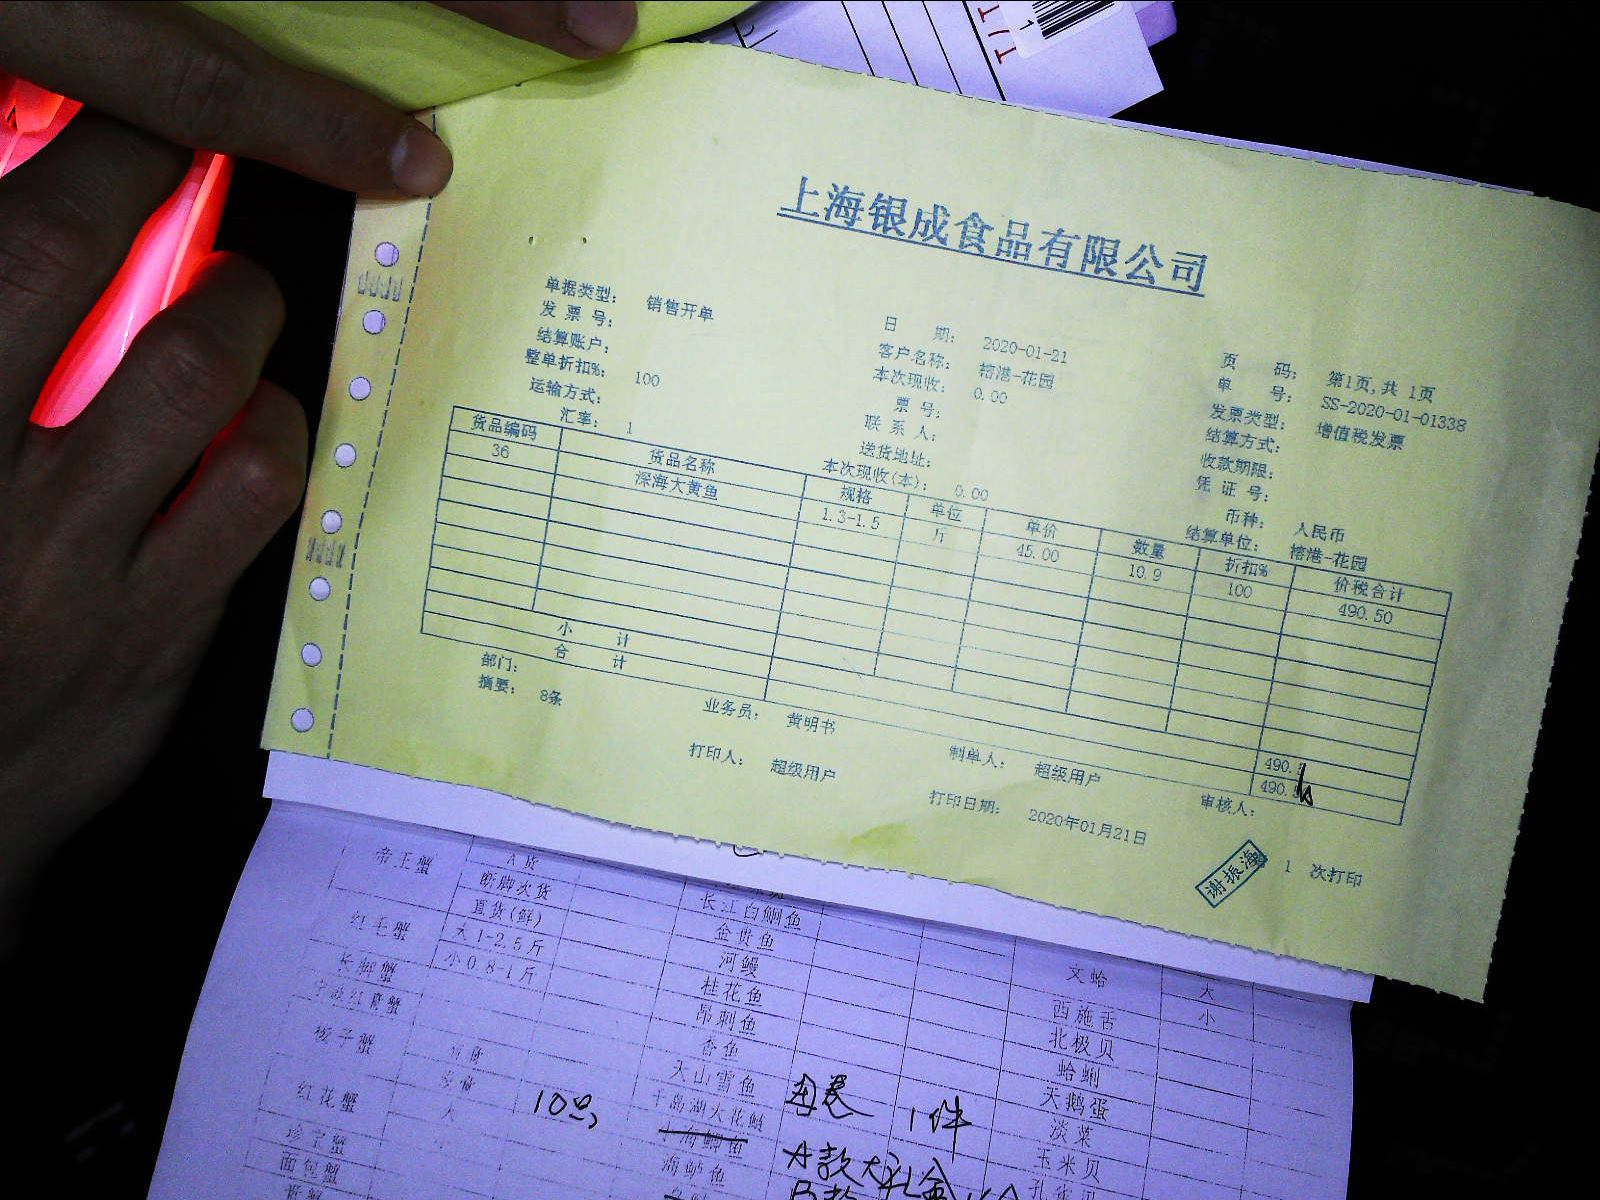 上海银成食品有限公司
单据类型： 销售开单 日 期： 2020-01-21 页 码： 第1页,共 1页
发 票 号： 客户名称： 榕港-花园 单 号： SS-2020-01-01338
结算账户： 本次现收： 0.00 发票类型： 增值税发票
整单折扣%： 100 票 号： 结算方式：
运输方式： 联 系 人： 收款期限：
汇率： 1 送货地址： 凭 证 号：
本次现收(本)： 0.00 币种： 人民币
结算单位： 榕港-花园
货品编码 货品名称 规格 单位 单价 数量 折扣% 价税合计
36 深海大黄鱼 1.3-1.5 斤 45.00 10.9 100 490.50
小 计 490.
合 计 490.
部门： 业务员： 黄明书 制单人： 超级用户 审核人：
摘要： 8条 打印人： 超级用户 打印日期： 2020年01月21日 1 次打印
谢振海
T/T
1
帝王蟹 A货
断脚次货 长江白鮰鱼
直货(鲜) 金贵鱼 文蛤 大
红毛蟹 大1-2.5斤 河鳗 小
小0.8-1斤 桂花鱼 西施舌
长脚蟹 昂刺鱼 北极贝
香鱼 蛤蜊
天山雪鱼 天鹅蛋
千岛湖大花鲢 淡菜
红花蟹 10只 1件
珍宝蟹 海鲈鱼 玉米贝
面包蟹 A款大礼盒